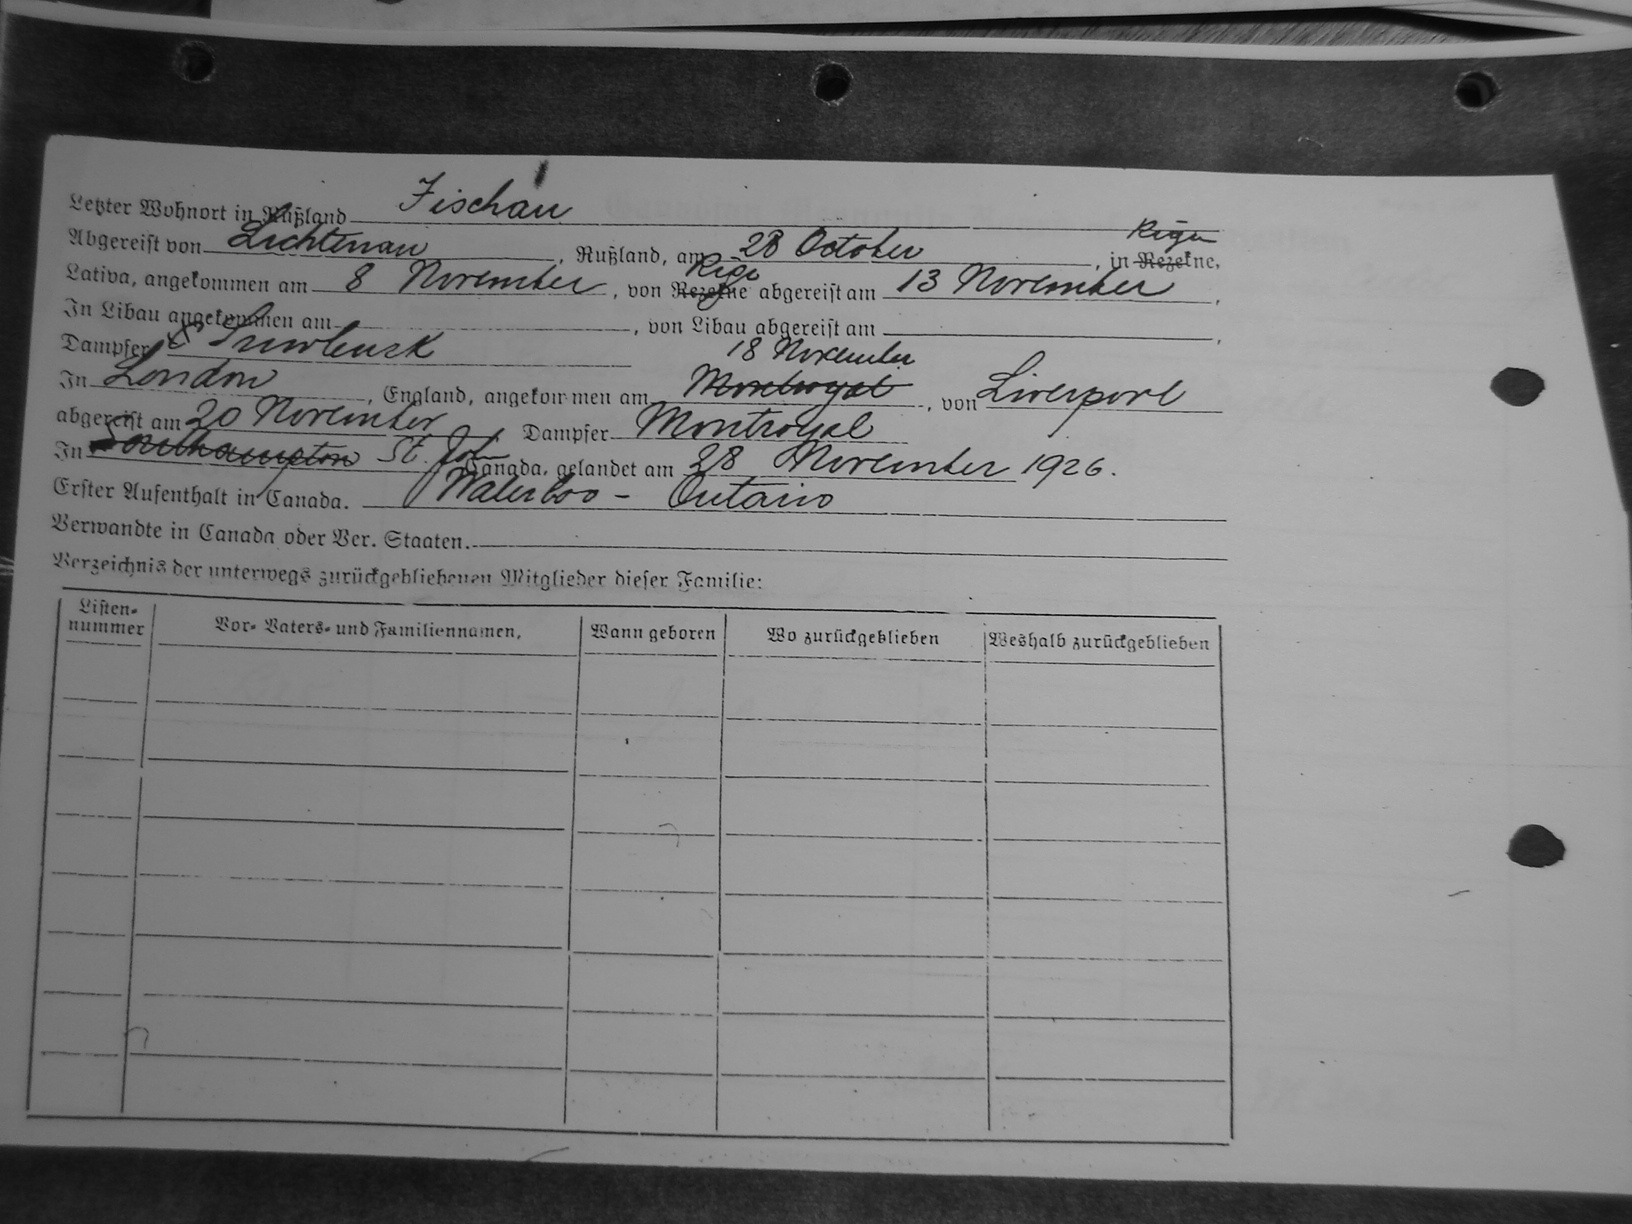 Letzter Wohnort in Rußland Fischau
Abgereist von Lichtenau, Rußland, am 28 October, in Rezekne, Riga
Lativa, angekommen am 8 November, von Rezekne Riga abgereist am 13 November,
In Libau angekommen am, von Libau abgereist am,
Dampfer Smolensk
18 November
In London, England, angekommen am Montroyal, von Liverpool
abgereist am 20 November, Dampfer Montroyal
In Southampton St. Joh Canada, gelandet am 28 November 1926.
Erster Aufenthalt in Canada. Waterloo - Ontario
Verwandte in Canada oder Ver. Staaten.
Verzeichnis der unterwegs zurückgebliebenen Mitglieder dieser Familie:
Listen-nummer Vor- Vaters- und Familiennamen, Wann geboren Wo zurückgeblieben Weshalb zurückgeblieben